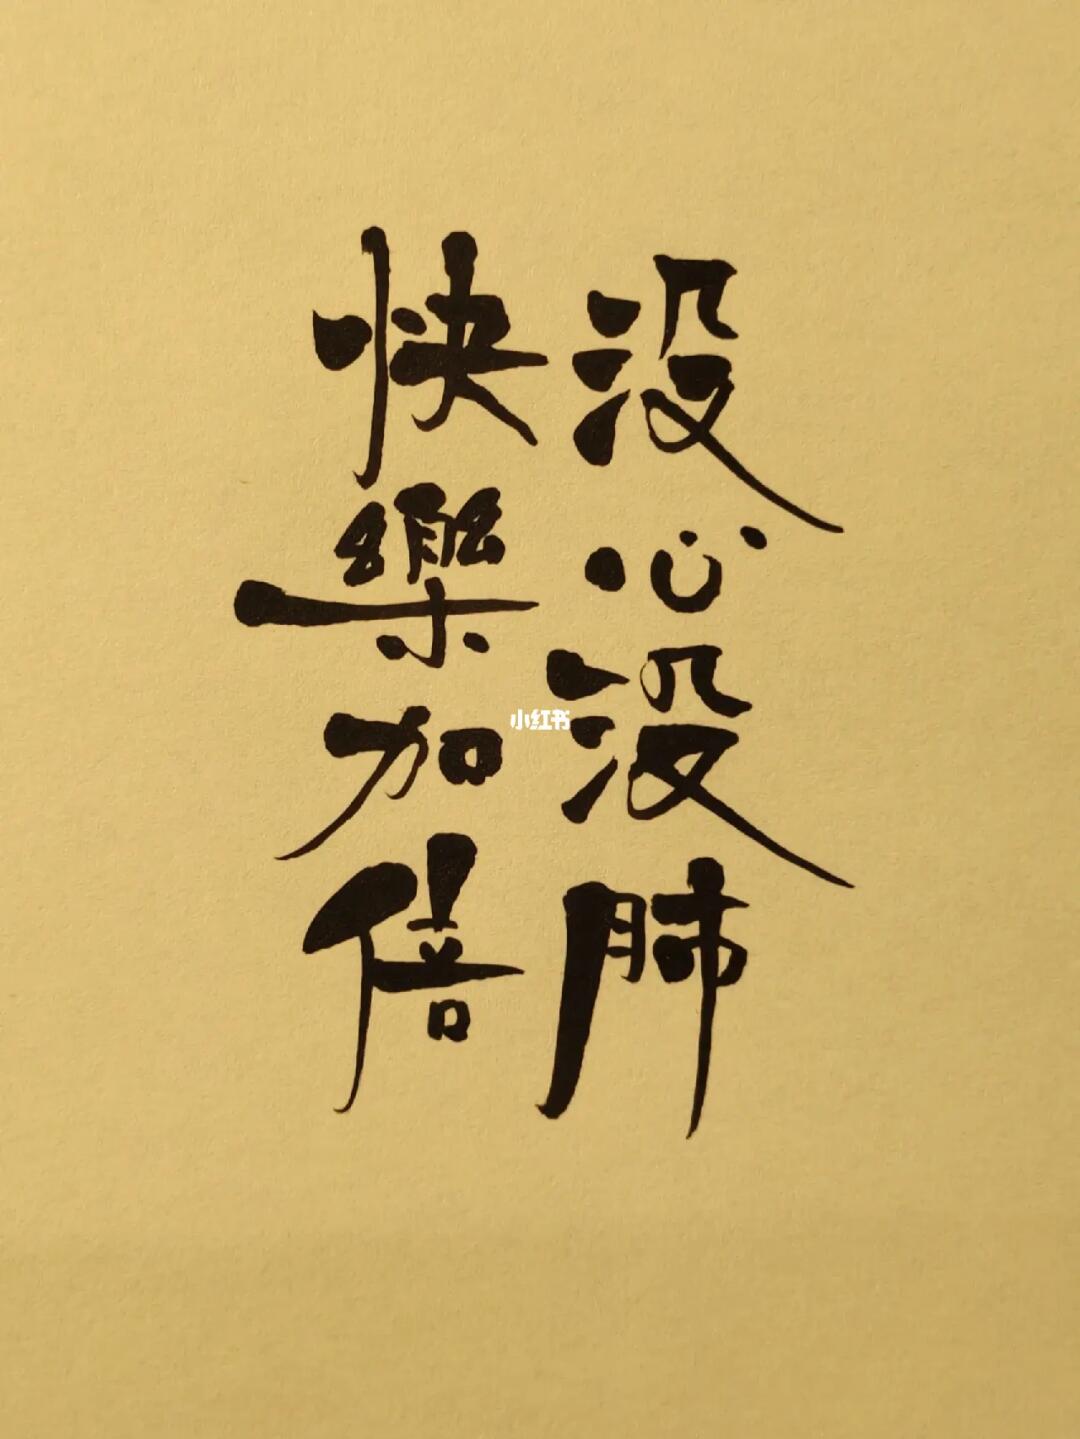 没心没肺
快樂加倍
小红书